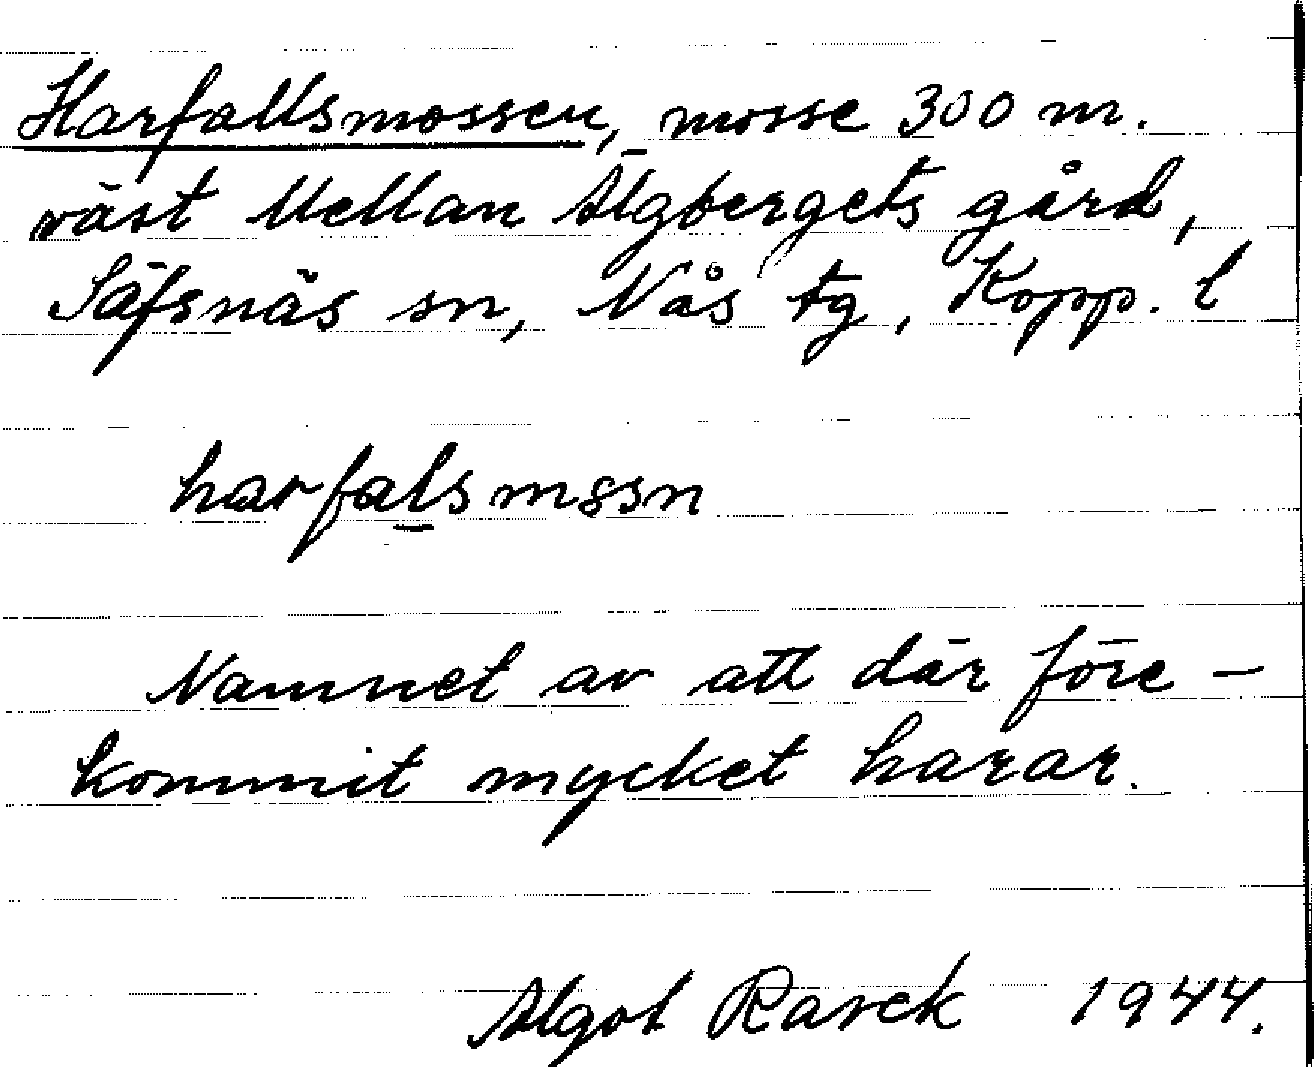 Harfallsmossen, mosse 300 m.
väst Mellan Älgbergets gård,
Säfsnäs sn, Nås tg, Kopp. l
harfalsmssn
Namnet av att där före-
kommit mycket harar.
Algot Ravek 1944.